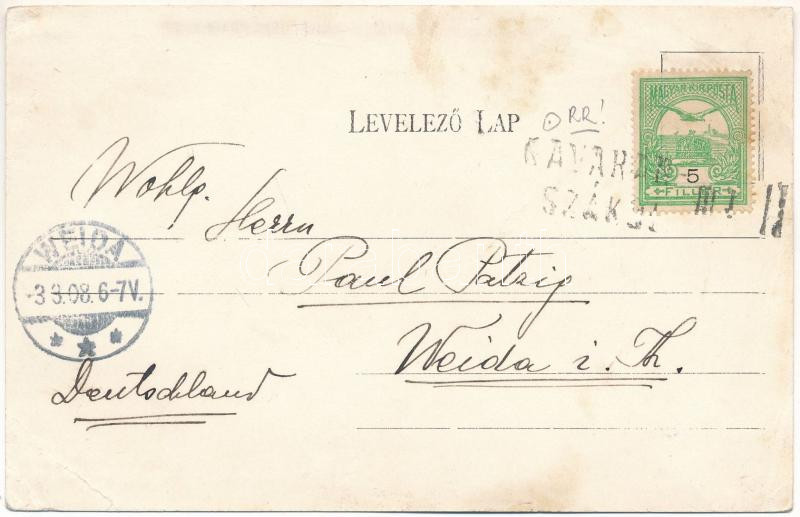 LEVELEZŐ LAP
ORR!
MAGYAR KIR. POSTA
5
FILLÉR
KAVARÁN
SZÁKUL
Wohlg.
Herrn
Paul Patzig
Weida i. Th.
Deutschland
WEIDA
-3 3.08.6-7V.